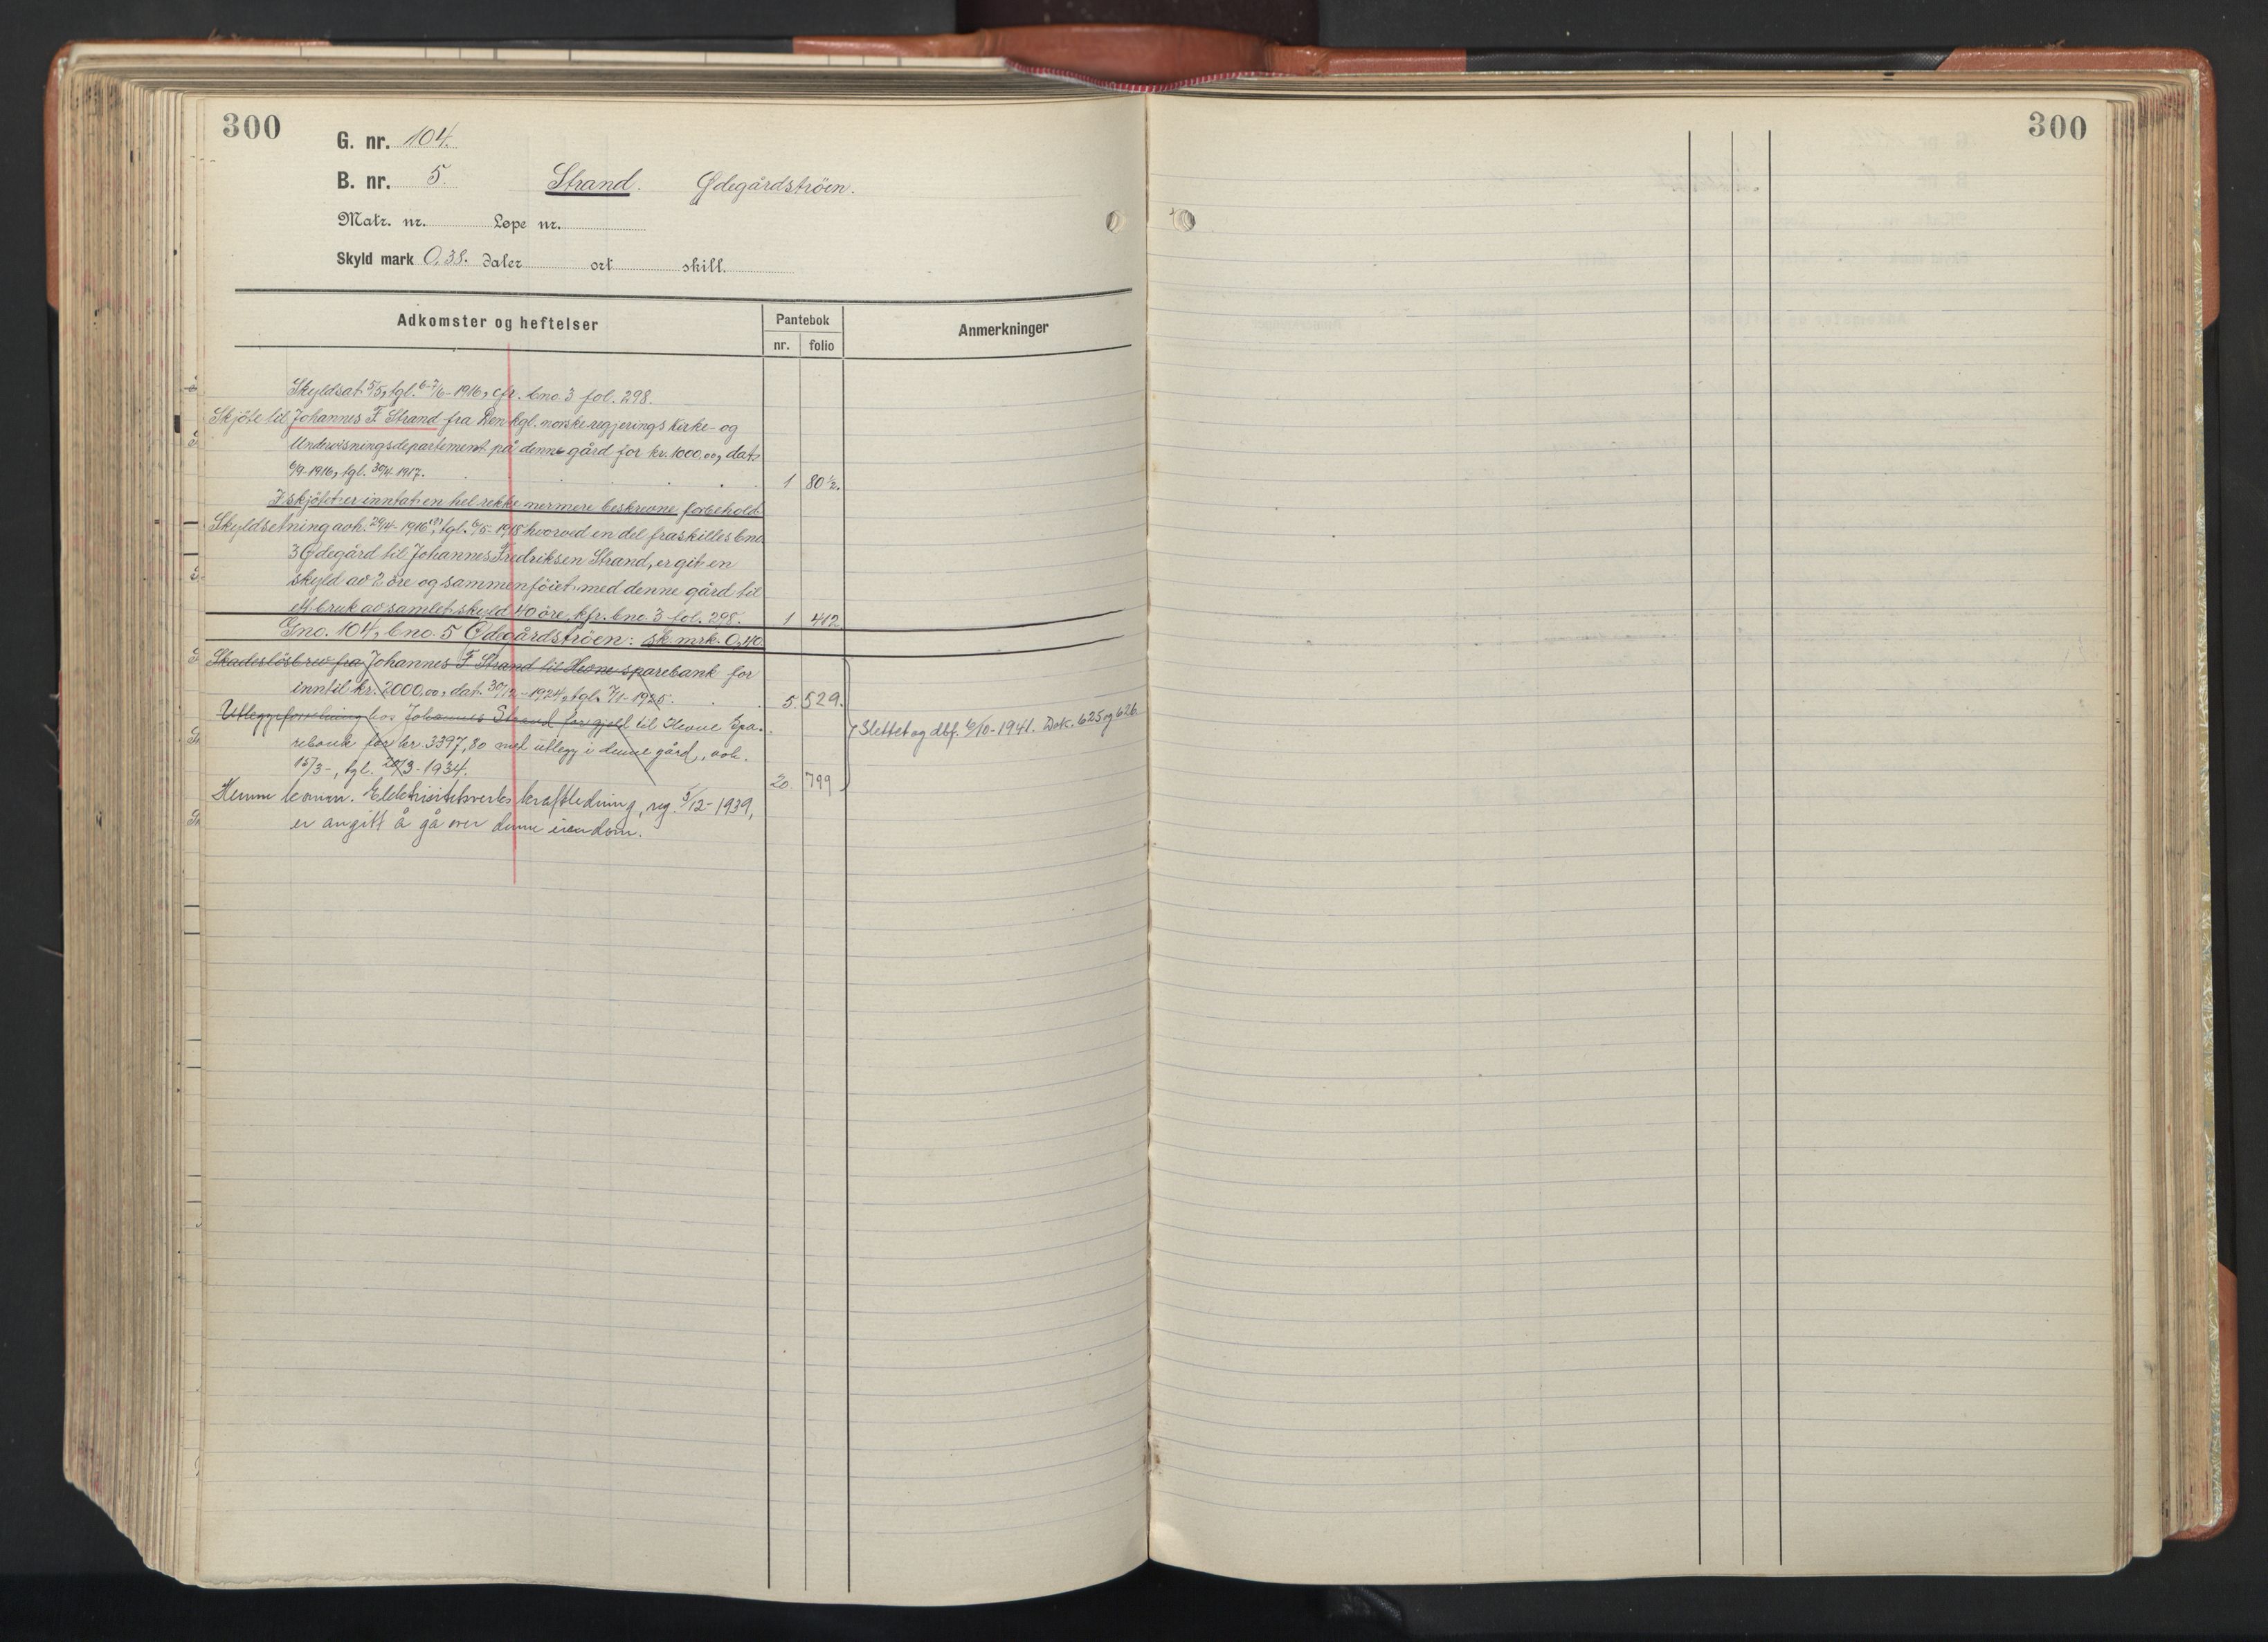 300
300
G. nr. 104.
B. nr. 5. Strand. Ødegårdstrøen.
Matr. nr. Løpe nr.
Skyld mark 0,38. daler ort skill.
Adkomster og heftelser
Pantebok
nr. folio
Anmerkninger
Skyldsat 5/5, tgl. 6-7/6-1916, cfr. bno. 3 fol. 298.
Skjøte til Johannes F Strand fra Den kgl. norske regjerings Kirke- og
Undervisningsdepartement på denne gård for kr. 1000.00, dat.
6/9-1916, tgl. 30/4 1917. 1 80½.
I skjøtet er inntat en hel rekke nermere beskrevne forbehold.
Skyldsetning avh. 29/4-1916(?), tgl. 6/5-1918 hvorved en del fraskilles bno
3 Ødegård til Johannes Fredriksen Strand, er git en
skyld av 2 øre og sammenføiet med denne gård til
ett bruk av samlet skyld 40 øre, kfr. bno. 3 fol. 298. 1 412
Gno. 104, bno. 5 Ødegårdstrøen: sk. mrk. 0,40.
Skadesløsbrev fra Johannes F Strand til Hevne sparebank for
inntil kr. 2000.00, dat. 30/12-1924, tgl. 7/1-1925. 5. 529.
Utleggsforretning hos Johannes Strand for gjeld til Hevne Spa-
rebank for kr. 3397,80 med utlegg i denne gård, avh.
15/3-, tgl. 20/3-1934. 20 799
Slettet og dbf. 6/10-1941. Dok. 625 og 626.
Hemne komm. Elektrisitetsverks kraftledning, reg. 5/12-1939,
er angitt å gå over denne eiendom.